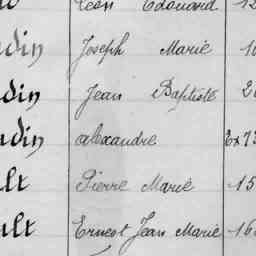 Léon Edouard 12
din Joseph Marie 10
din Jean Baptiste 2
din alexandre Ex 73
lt Pierre Marie 15
ult Ernest Jean Marie 16